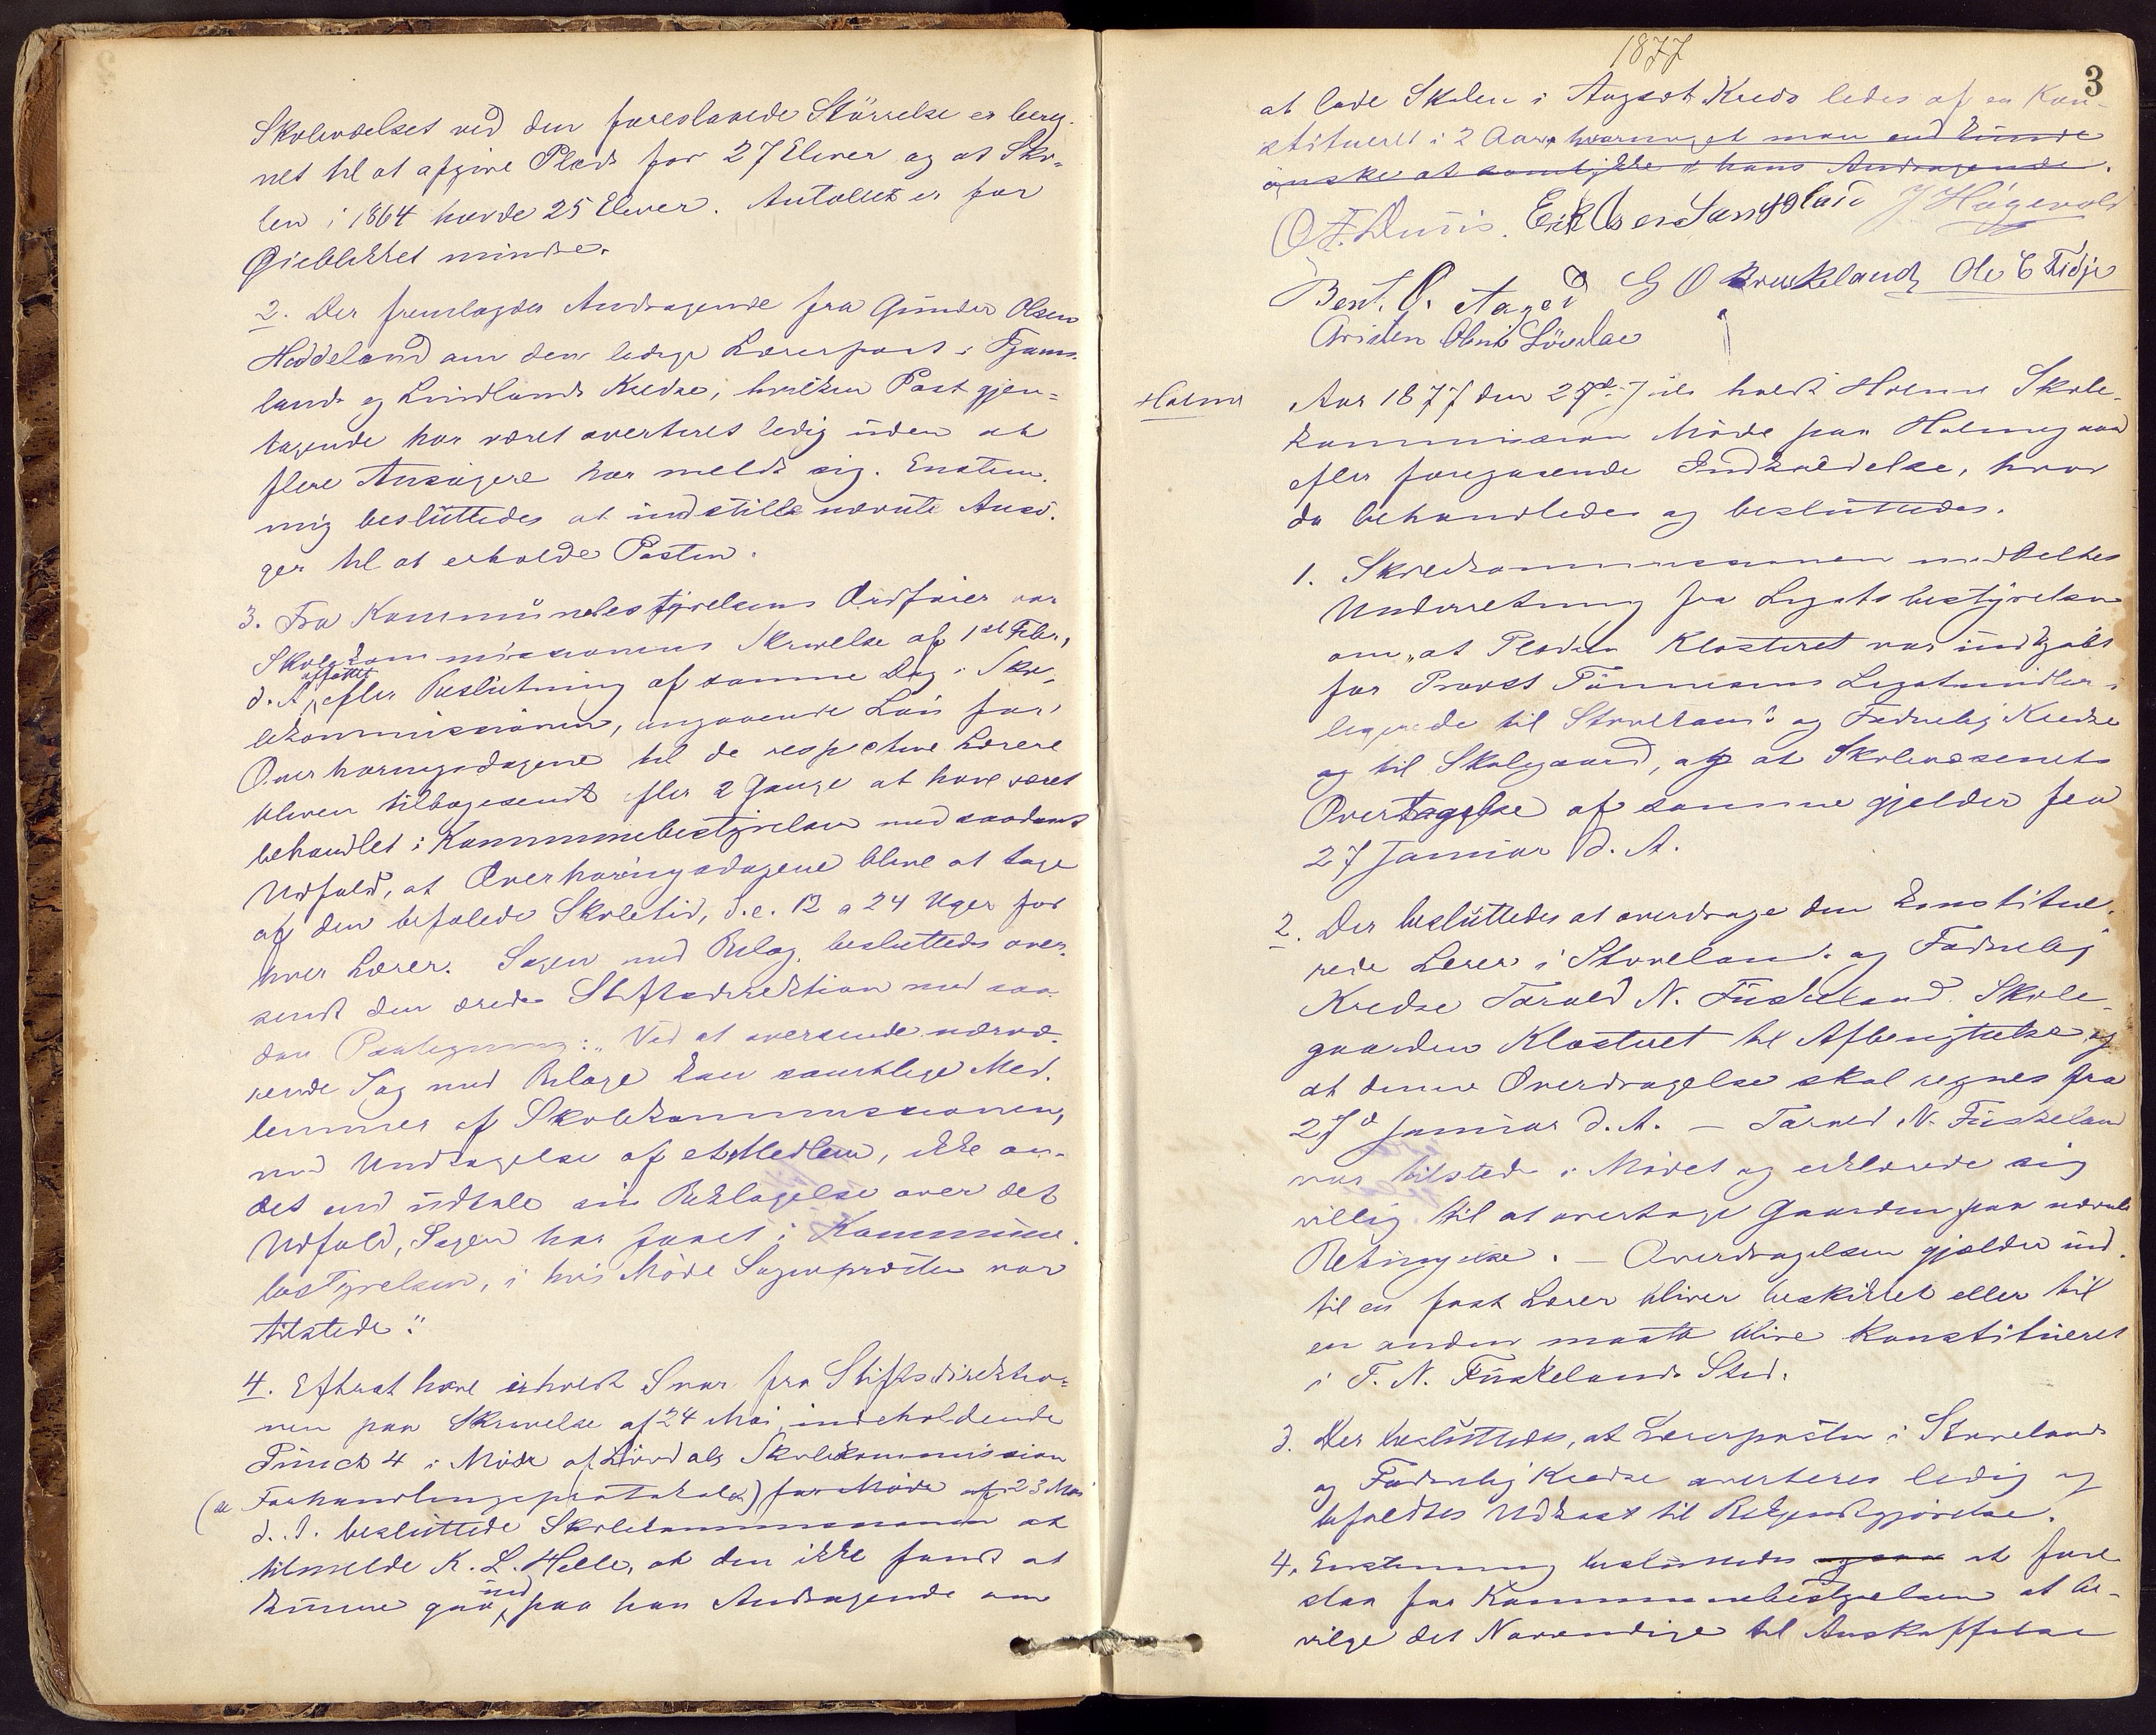 Skoleværelset ved den foreslaaede Störrelse er bereg-
net til at afgive Plads for 27 Elever og at Sko-
len i 1864 havde 25 Elever. Antallet er for
Øieblikket mindre.
2. Der fremlagdes Andragende fra Gunder Olsen
Haddeland om den ledige Lærerpost i Fjems-
lands og Lindlands Kredse, hvilken Post gjen-
tagende har været averteret ledig uden at
flere Ansögere har meldt sig. Enstem-
mig besluttedes at indstille nævnte Ansö-
ger til at erholde Posten.
3. Fra Kommunebestyrelsens Ordförer var
Skolekommissionens Skrivelse af 1st Febr,
d. A., affattet efter Beslutning af samme Dag i Sko-
lekommissionen, angaaende Lön for
Overhöringsdagene til de respective Lærere
bleven tilbagesendt efter 2 Gange at have været
behandlet i Kommunebestyrelsen med saadant
Udfald, at Overhöringsdagene blive at tage
af den befalede Skoletid, d.e. 12 a 24 Uger for
hver Lærer. Sagen med Bilag besluttedes over-
sendt den ærede Stiftsdirektion med saa-
dan Paategning: "Ved at oversende nærvæ-
rende Sag med Bilage kan samtlige Med-
lemmer af Skolekommissionen,
med Undtagelse af et Medlem, ikke an-
det end udtale sin Beklagelse over det
Udfald, Sagen har faaet i Kommune-
bestyrelsen, i hvis Möde Sognepræsten var
tilstede."
4. Efter at have erholdt Svar fra Stiftsdirektio-
nen paa Skrivelse af 24 Mai, indeholdende
Punct 4 i Möde af Lövdals Skolekommission
(se Forhandlingsprotokol) for Möde af 23 Mai
d. A. besluttede Skolekommissionen at
tilmelde K. L. Helle, at den ikke fandt at
kunne gaa ind paa hans Andragende om
1877
3
at lade Skolen i Augsdt Kreds ledes af en Kon-
stitueret i 2 Aar, hvornæst man end kunde
önske at samtykke i hans Andragende.
O. F. Duüs. Erik Olsen Langeland J Högevold
Bent. O. Aaged G O Brunkeland Ole C Tidje
Cristen Olsen Lövdal
Holme
Aar 1877 den 25de Juli holdt Holme Skole-
kommission Möde paa Holmegaard
efter foregaaende Indkaldelse, hvor
da behandledes og besluttedes.
1. Skolekommissionen meddeltes
Underretning fra Legatsbestyrelsen
om, at Pladsen Klosteret var indkjöbt
for Provst Tönnesens Legatsmidler i
liggende til Stoveland og Fodnebö Kredse
og til Skolegaard, og at Skolevæsenets
Overtagelse af samme gjelder fra
27 Januar d. A.
2. Der besluttedes at overdrage den konstitue-
rede Lærer i Stovelands og Fodnebö
Kredse Torald N. Fuskeland Skole-
gaarden Klosteret til Afbenyttelse, og
at denne Overdragelse skal regnes fra
27de Januar d. A. — Torald N. Fuskeland
var tilstede i Mödet og erklærede sig
villig til at overtage Gaarden paa nævnte
Betingelse. — Overdragelsen gjælder ind-
til en fast Lærer bliver beskikket eller til
en anden maatte blive Konstitueret
i T. N. Fuskelands Sted.
3. Der besluttedes, at Lærerposten i Stovelands
og Fodnebö Kredse averteres ledig og
befattedes Udkast til Bekjendtgjörelse.
4. Enstemmig besluttedes at fore-
slaa for Kommunebestyrelsen at be-
vilge det Nödvendige til Anskaffelse